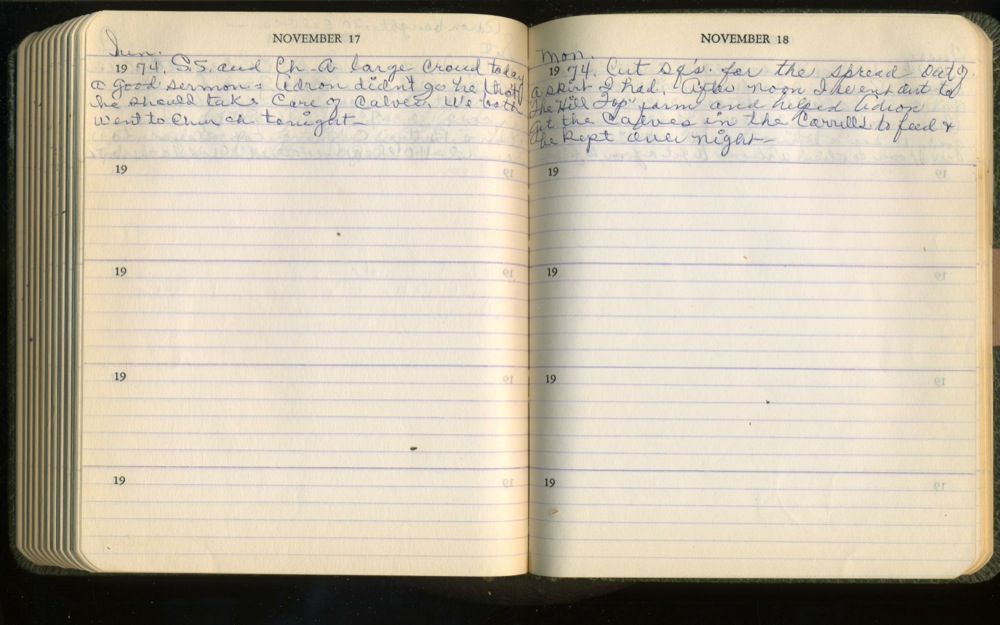 NOVEMBER 17
Sun.
1974. S.S. and Ch. A large Croud today
a good sermon. Adron didn't go he thot
he should take Care of Calves. We both
went to Church tonight-
19
19
19
19
NOVEMBER 18
Mon.
1974. Cut sq's. for the spread out of
a skirt I had. After noon I went out to
the Hill Top farm and helped Adron
get the Calves in the Corrills to feed &
be kept over night-
19
19
19
19